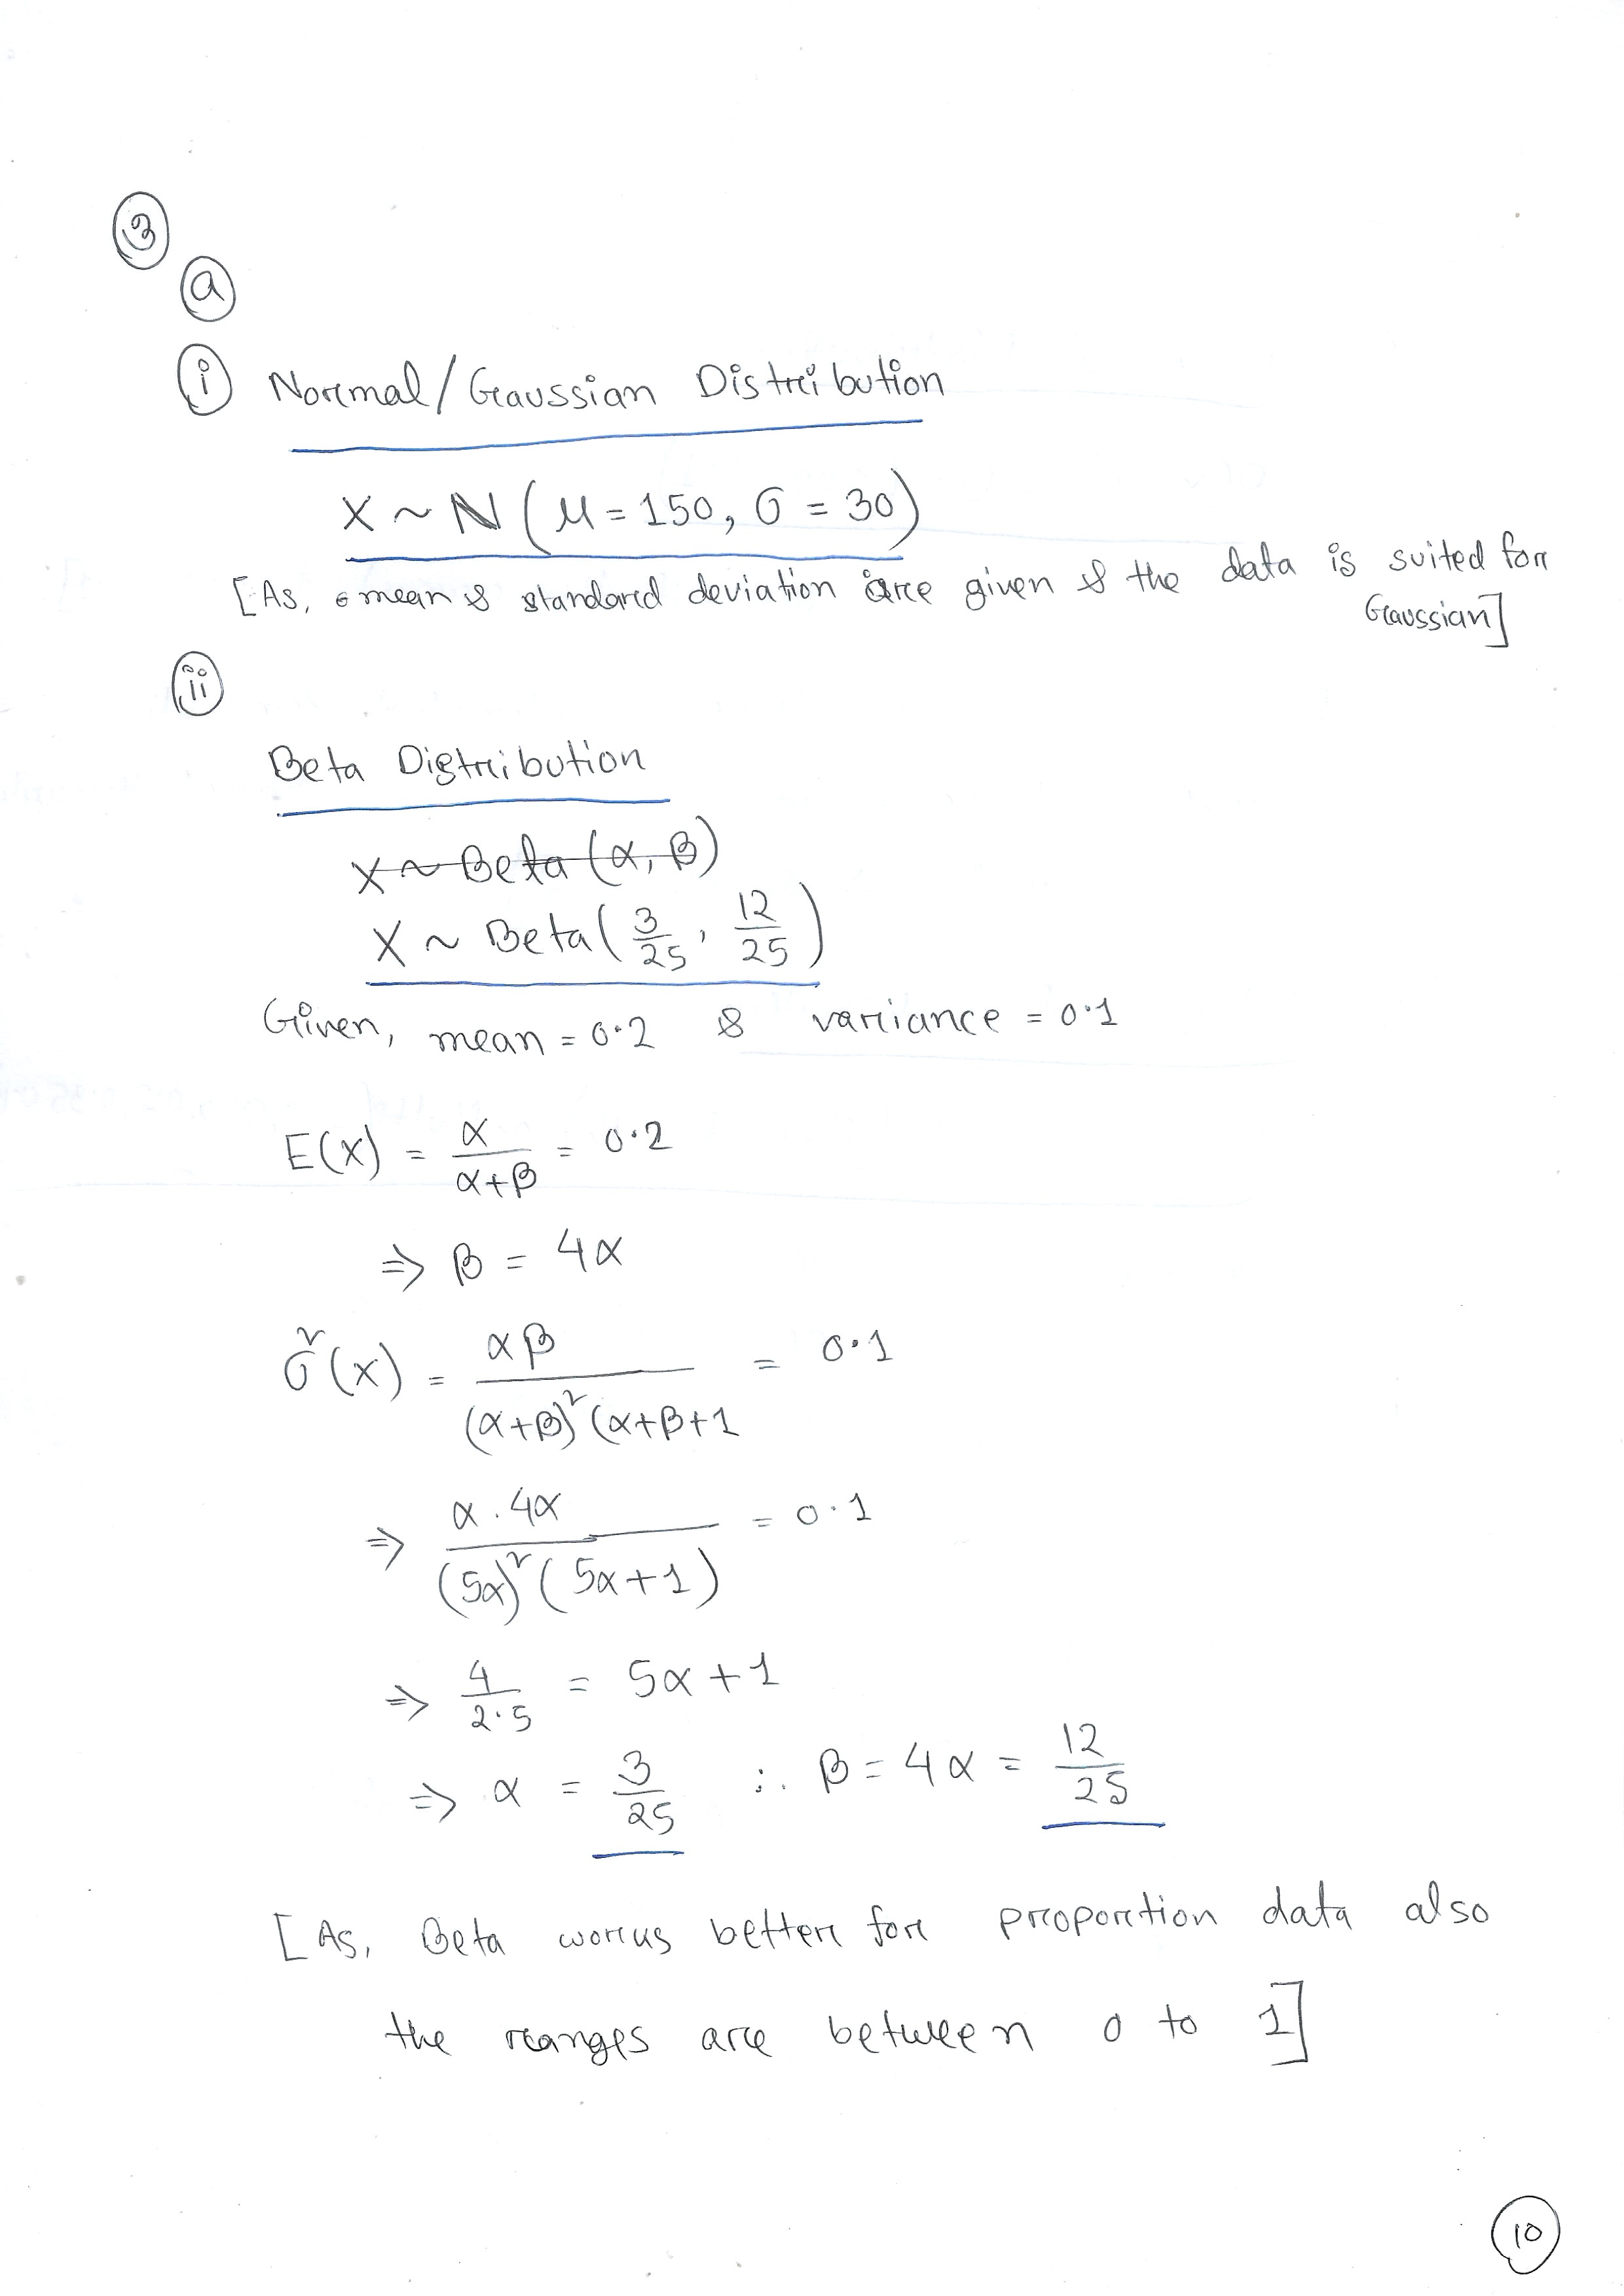 3
a
i Normal/Gaussian Distribution
X ~ N (μ = 150, σ = 30)
[As, mean & standard deviation are given & the data is suited for
Gaussian]
ii
Beta Distribution
X ~ Beta (α, β)
X ~ Beta (3/25, 12/25)
Given, mean = 0.2 & variance = 0.1
E(X) = α/(α+β) = 0.2
⇒ β = 4α
σ²(X) = αβ/((α+β)²(α+β+1 = 0.1
⇒ α.4α/((5α)²(5α+1)) = 0.1
⇒ 4/2.5 = 5α+1
⇒ α = 3/25 ∴ β = 4α = 12/25
[As, Beta works better for proportion data also
the ranges are between 0 to 1]
10